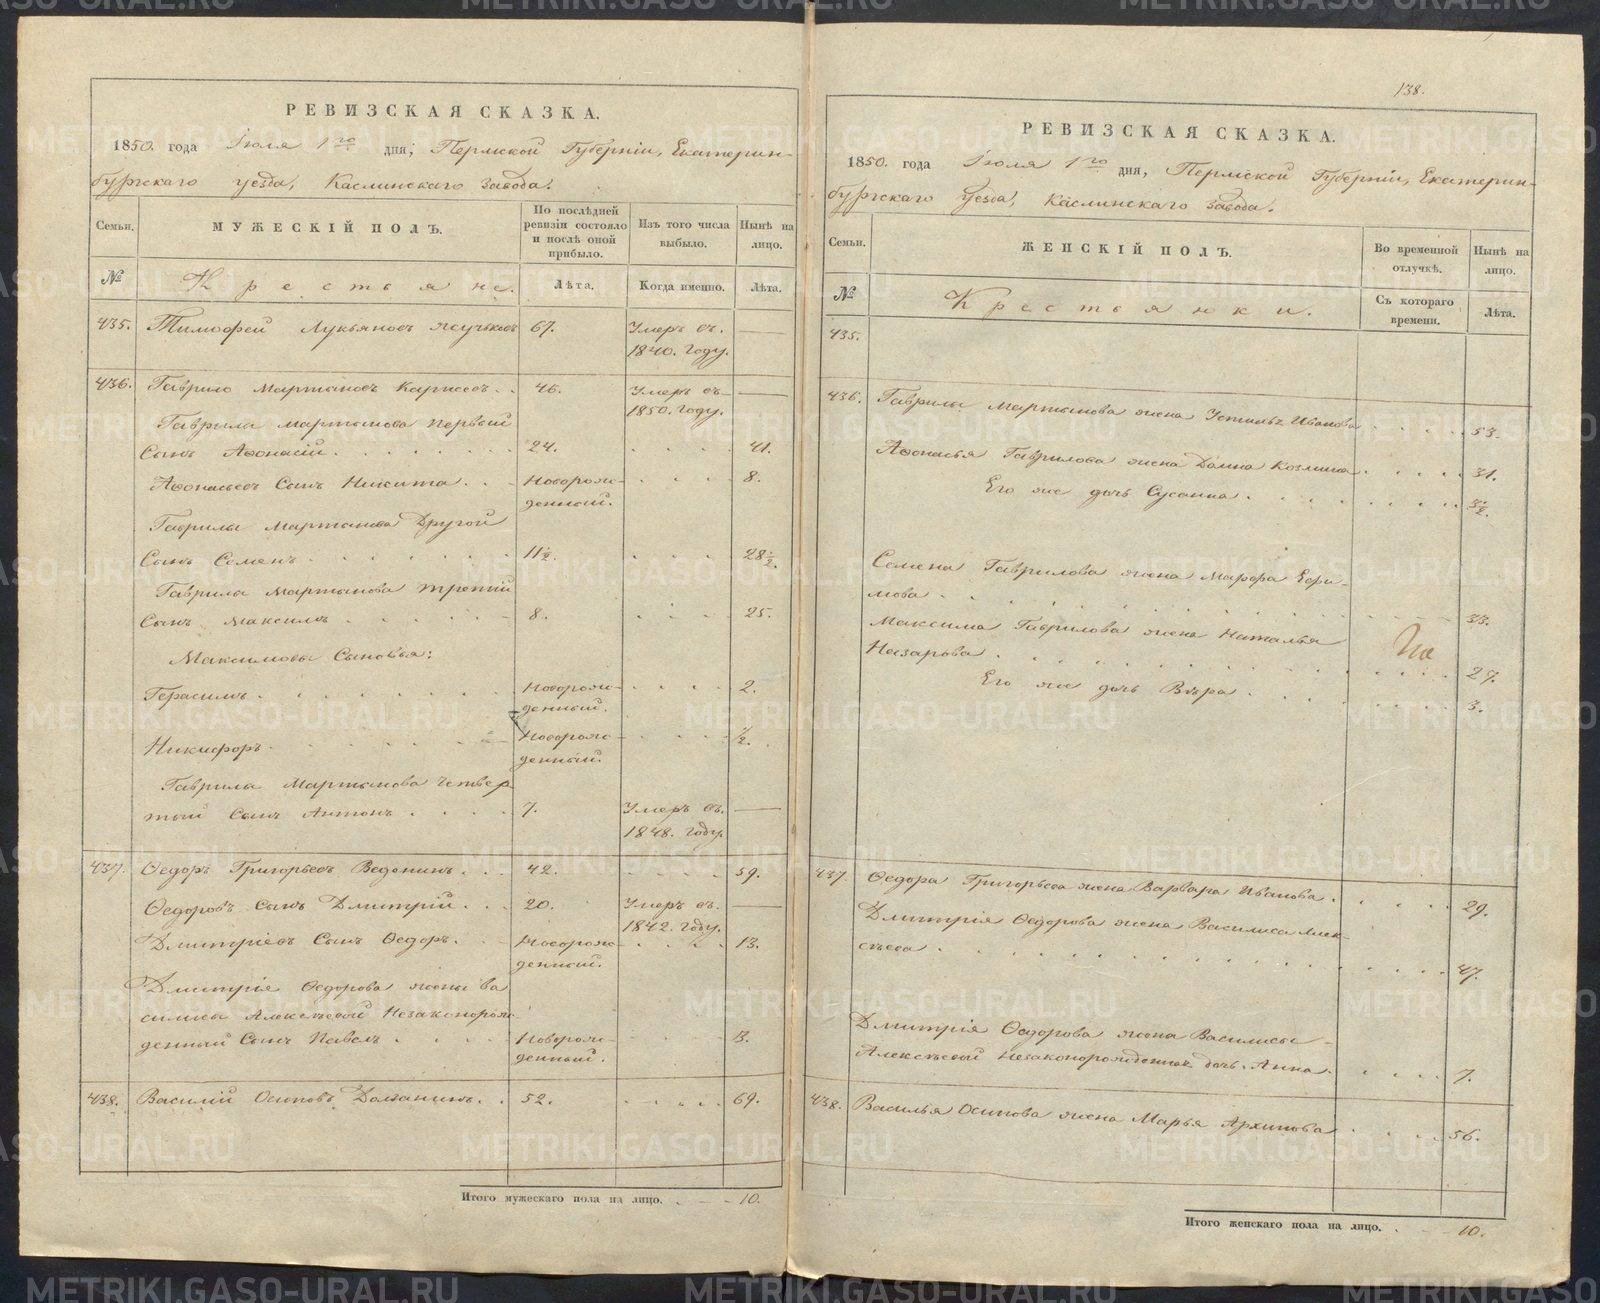 РЕВИЗСКАЯ СКАЗКА.
1850. года Іюля 1го дня, Пермской Губерніи, Екатерин-
бургскаго уезда, Каслинскаго завода.
Семьи. МУЖЕСКІЙ ПОЛЪ. По послѣдней ревизіи состояло и послѣ оной прибыло. Изъ того числа выбыло. Нынѣ на лицо.
№ Крестьяне. Лѣта. Когда именно. Лѣта.
435. Тимофей Лукьяновъ 67. Умеръ въ —
1840. году.
436. Гаврило Мартыновъ 46. Умеръ въ —
1850. году.
Гаврила Мартынова первый
Сынъ Афонасій 24. 41.
Афонасьевъ Сынъ Никита Новорож- 8.
денный.
Гаврилы Мартынова Другой
Сынъ Семенъ 11½. 28½.
Гаврила Мартынова третій
Сынъ Максимъ 8. 25.
Максимовы Сыновья:
Герасимъ Новорож- 2.
денный.
Никифоръ Новорож- ½.
денный.
Гаврила Мартынова четвер
тый Сынъ Антонъ 7. Умеръ въ —
1848. году.
437. Ѳедоръ Григорьевъ Веденинъ 42. 59.
Ѳедоровъ Сынъ Дмитрій 20. Умеръ въ —
1842. году.
Дмитріевъ Сынъ Ѳедоръ Новорож- 13.
денный.
Дмитрія Ѳедорова жены Ва
силисы Алексѣевой Незаконорож-
денный Сынъ Павелъ Новорож- 3.
денный.
438. Василій Осиповъ 52. 69.
Итого мужескаго пола на лицо. 10.
138.
РЕВИЗСКАЯ СКАЗКА.
1850. года Іюля 1го дня, Пермской Губерніи, Екатерин-
бургскаго Уезда, Каслинскаго завода.
Семьи. ЖЕНСКІЙ ПОЛЪ. Во временной отлучкѣ. Нынѣ на лицо.
№ Крестьянки. Съ котораго времени. Лѣта.
435.
436. Гаврилы Мартынова жена Иванова 53.
Афонасья Гаврилова жена Домна Козмина 31.
Его же дочь Сусанна 3½.
Семена Гаврилова жена Марфа Ефи-
мова 33.
Максима Гаврилова жена Наталья
Назарова 27.
Его же дочь Вѣра 3.
437. Ѳедора Григорьева жена Варвара Иванова 29.
Дмитрія Ѳедорова жена Василиса Алек-
сѣева 47.
Дмитрія Ѳедорова жена Василисы
Алексѣевой незаконорожденная дочь Анна 7.
438. Василья Осипова жена Марья Архипова 56.
Итого женскаго пола на лицо. 10.
METRIKI.GASO-URAL.RU